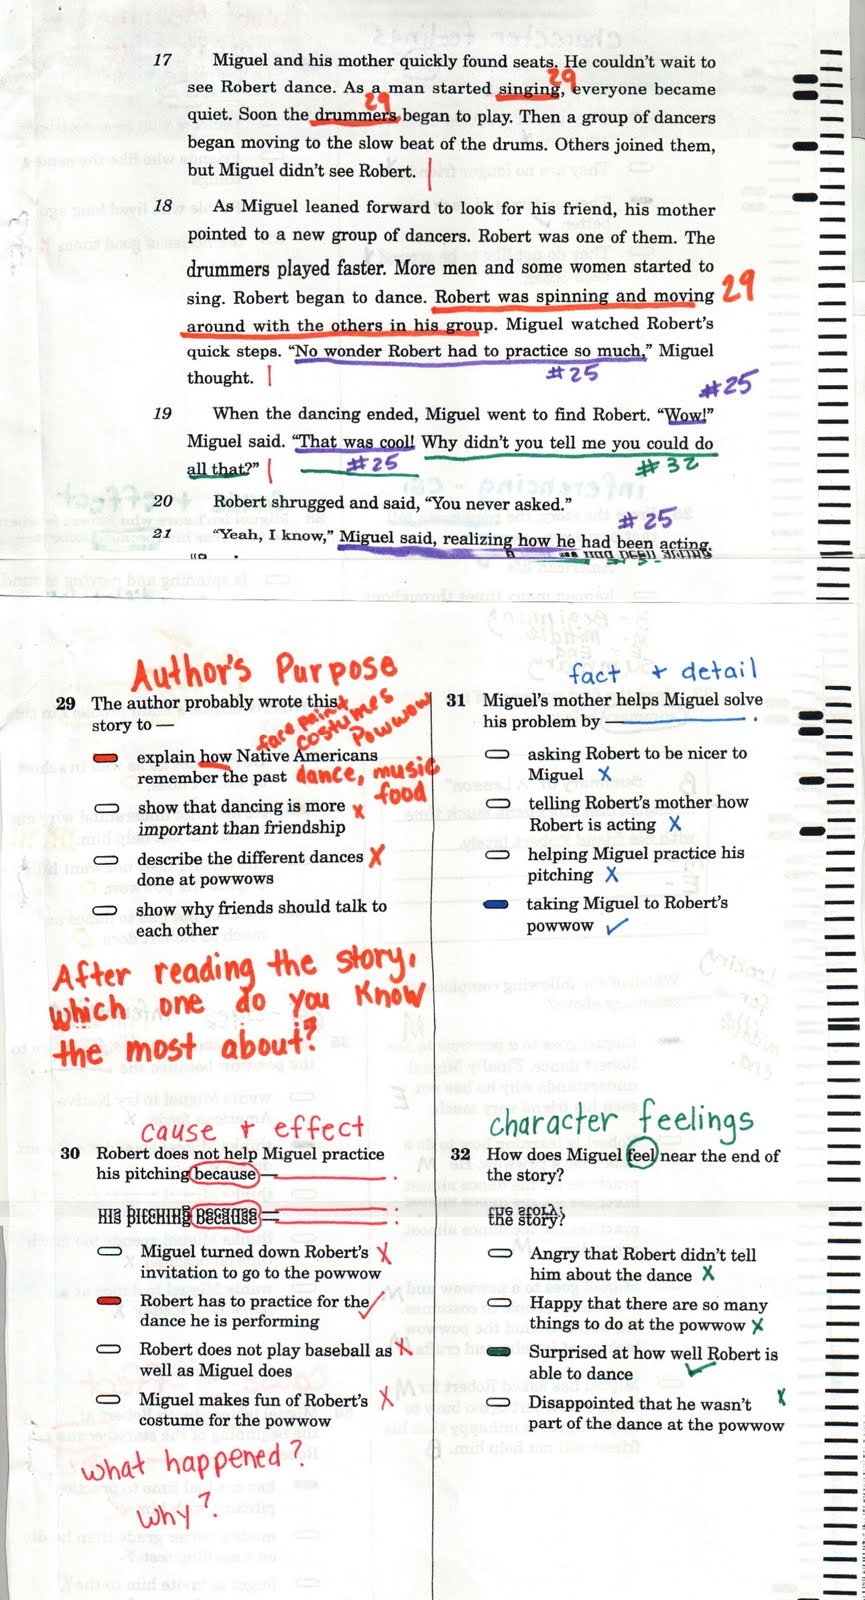 17 Miguel and his mother quickly found seats. He couldn't wait to
see Robert dance. As a man started singing, everyone became 29
quiet. Soon the drummers began to play. Then a group of dancers 29
began moving to the slow beat of the drums. Others joined them,
but Miguel didn't see Robert.
18 As Miguel leaned forward to look for his friend, his mother
pointed to a new group of dancers. Robert was one of them. The
drummers played faster. More men and some women started to
sing. Robert began to dance. Robert was spinning and moving 29
around with the others in his group. Miguel watched Robert's
quick steps. "No wonder Robert had to practice so much," Miguel
thought. #25
#25
19 When the dancing ended, Miguel went to find Robert. "Wow!"
Miguel said. "That was cool! Why didn't you tell me you could do
all that?" #25 #32
20 Robert shrugged and said, "You never asked."
#25
21 "Yeah, I know," Miguel said, realizing how he had been acting.
Author's Purpose
29 The author probably wrote this
story to —
face paint
costumes
Powwow
explain how Native Americans
remember the past dance, music
food
show that dancing is more x
important than friendship
describe the different dances x
done at powwows
show why friends should talk to
each other
After reading the story,
which one do you know
the most about?
cause + effect
30 Robert does not help Miguel practice
his pitching because — .
his pitching because — .
Miguel turned down Robert's x
invitation to go to the powwow
Robert has to practice for the ✓
dance he is performing
Robert does not play baseball as x
well as Miguel does
Miguel makes fun of Robert's x
costume for the powwow
what happened?
why?
fact + detail
31 Miguel's mother helps Miguel solve
his problem by — .
asking Robert to be nicer to
Miguel x
telling Robert's mother how
Robert is acting x
helping Miguel practice his
pitching x
taking Miguel to Robert's
powwow ✓
character feelings
32 How does Miguel feel near the end of
the story?
the story?
Angry that Robert didn't tell
him about the dance x
Happy that there are so many
things to do at the powwow x
Surprised at how well Robert is
able to dance ✓
Disappointed that he wasn't x
part of the dance at the powwow